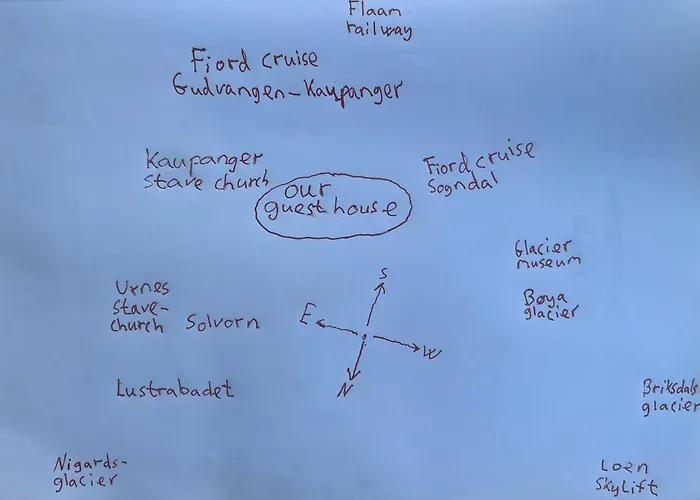 Flaam
railway
Fiord cruise
Gudvangen-Kaupanger
Kaupanger
stave church
Fiord cruise
Sogndal
our
guest house
Glacier
museum
Bøya
glacier
Urnes
stave-
church
Solvorn
S
E
W
N
Lustrabadet
Briksdals
glacier
Nigards-
glacier
Loen
Skylift